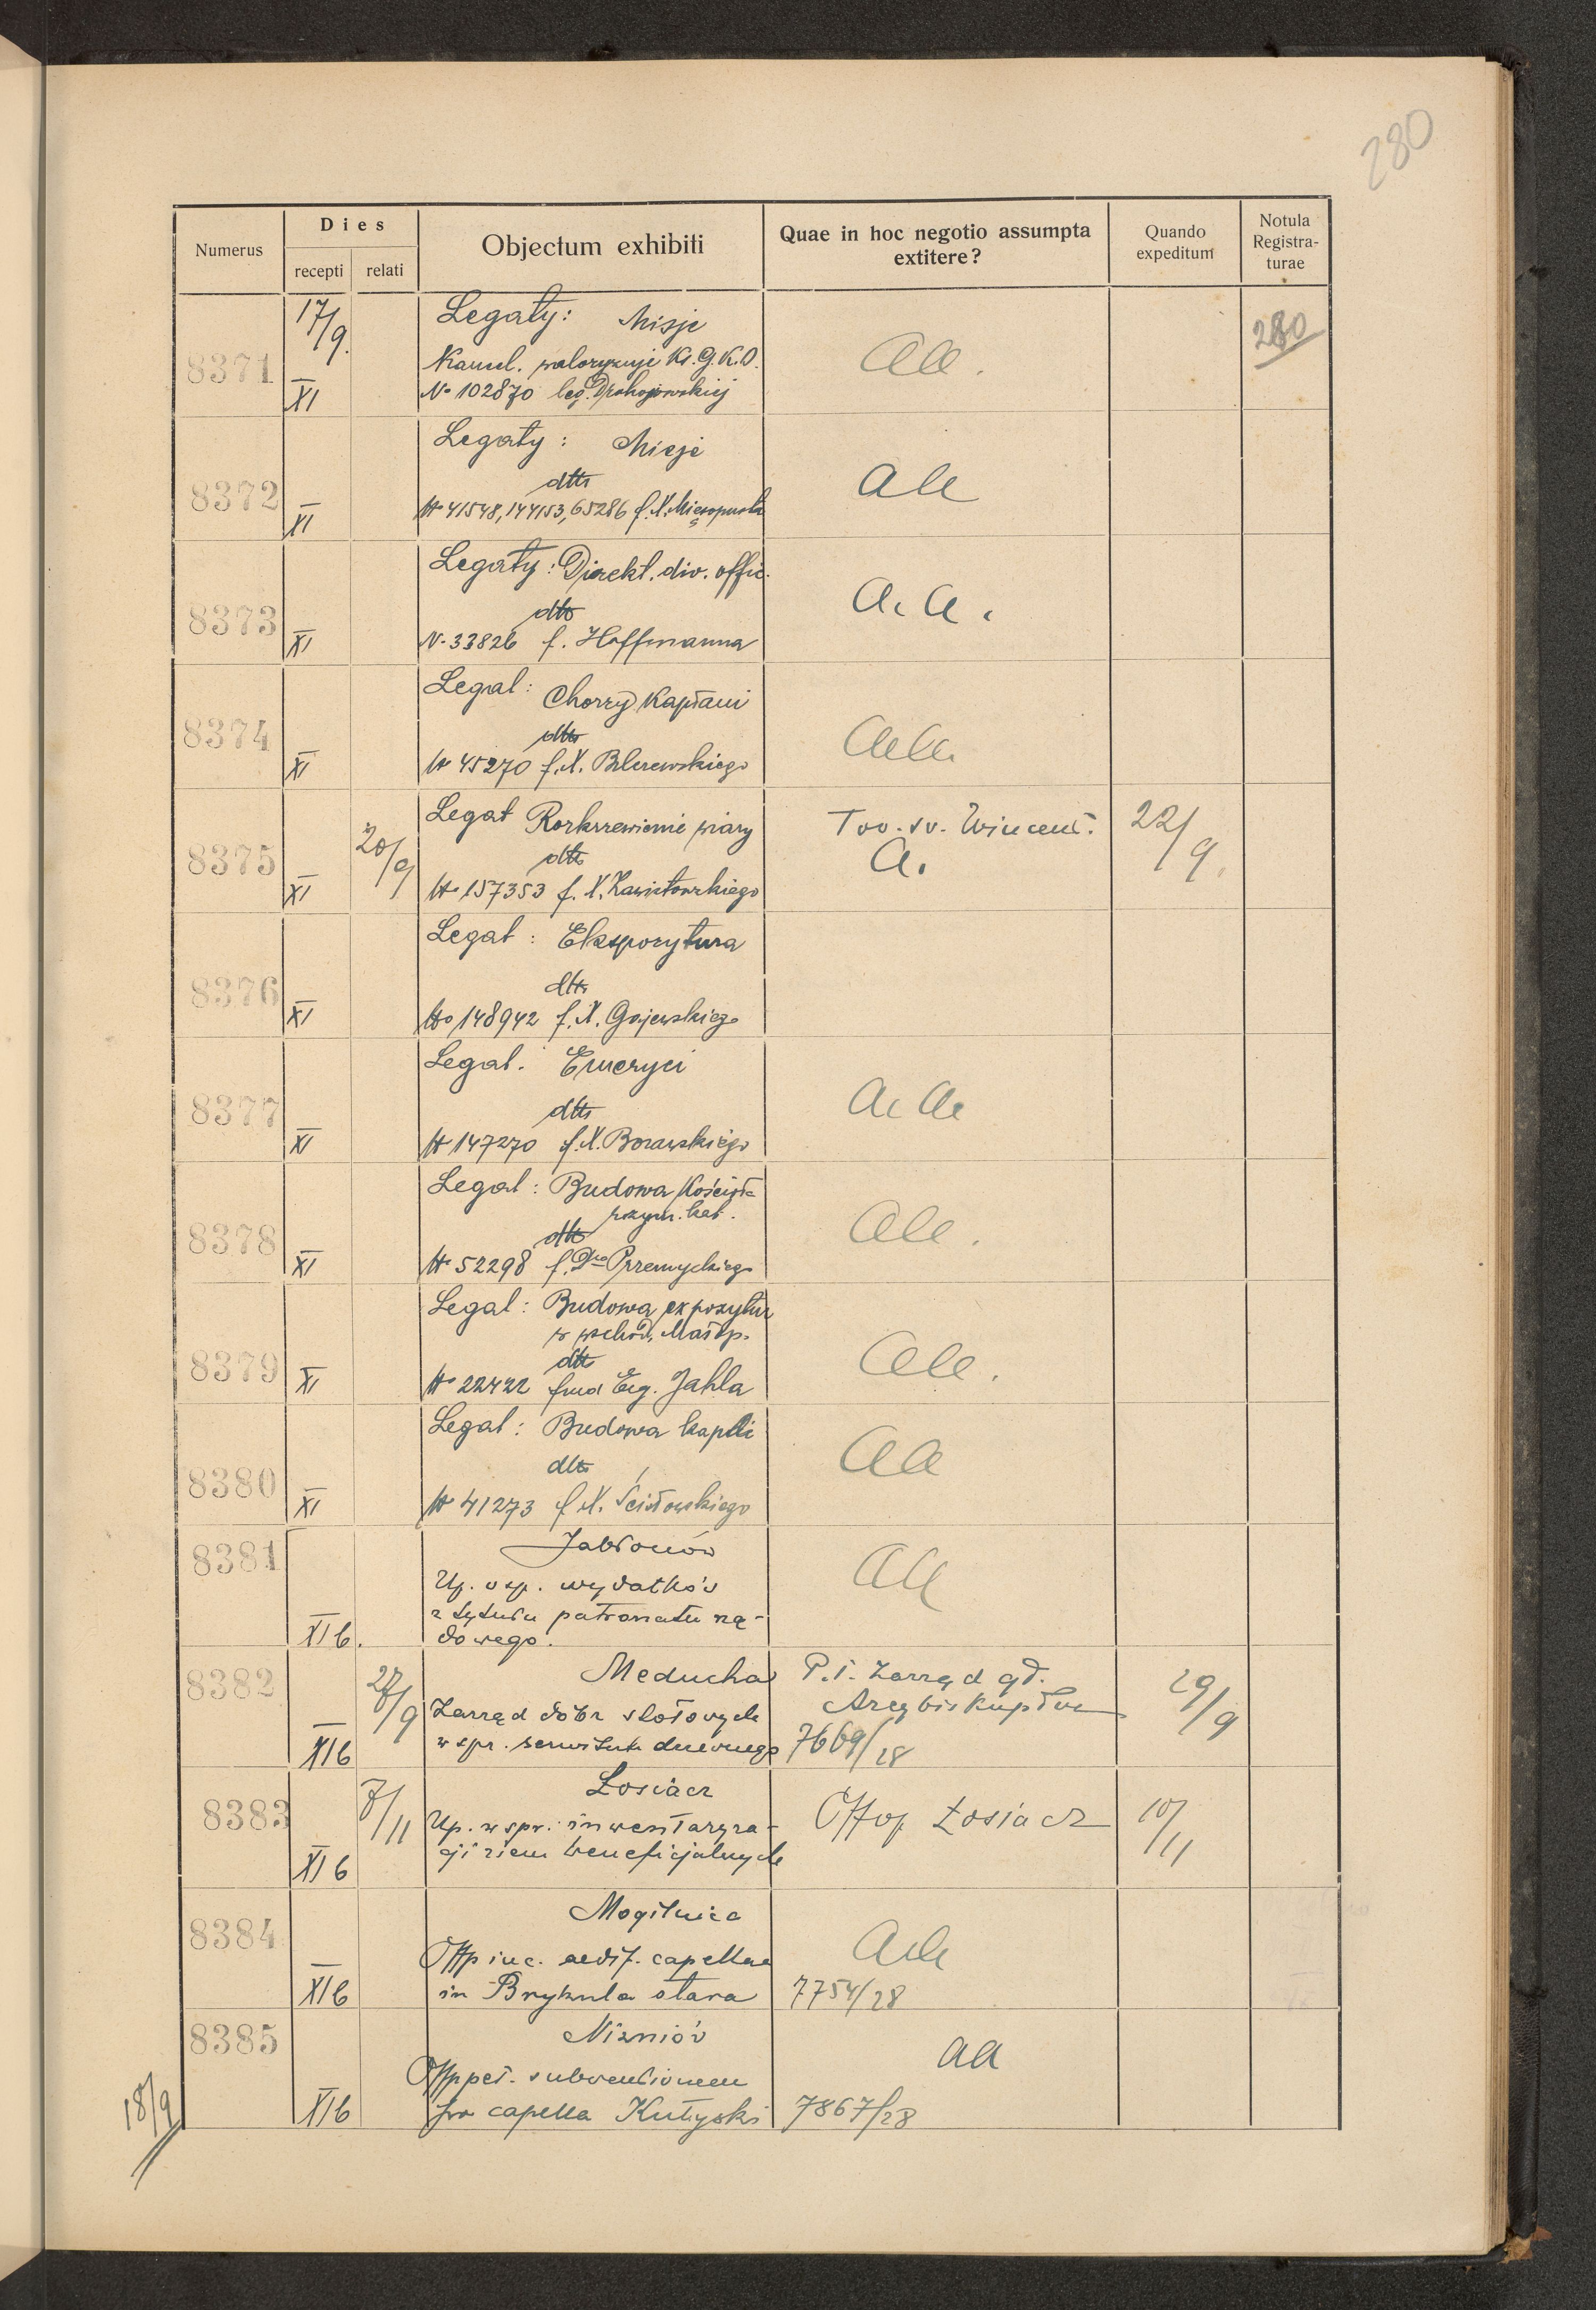 280
Numerus
Dies
recepti
relati
Objectum exhibiti
Quae in hoc negotio assumpta
extitere?
Quando
expeditum
Notula
Registra-
turae
8371
17/9.
XI
Legaty: Misje
Kancel. waloryzuje Ks. G.K.O.
No 102870 leg. Drohojowskiej
aa.
280
8372
XI
Legaty: Misje
dtto
No 41548, 144153, 65286 f. X. Mięsopusta
aa
8373
XI
Legaty: Direkt. div. offic.
dtto
N. 33826 f. Hoffmanna
a. a.
8374
XI
Legat: Chorzy Kapłani
dtto
No 45270 f. X.
aa.
8375
XI
20/9
Legat Rozkrzewienie wiary
dtto
No 157353 f. X. Zawistowskiego
Tow. św. Wincent.
a.
22/9.
8376
XI
Legat: Ekspozytura
dtto
No 148942 f. X. Gajewskiego
8377
XI
Legat. Emeryci
dtto
No 147270 f. X. Borawskiego
a. a.
8378
XI
Legat: Budowa Kościoła
rzym. kat.
dtto
No 52298 f. Dra Przemyckiego
aa.
8379
XI
Legat: Budowa expozytur
w wschod. Małop.
dtto
No 22422 fund Eug. Jahla
aa.
8380
XI
Legat: Budowa kaplic
dtto
No 41273 f. X. Ścisłowskiego
aa
8381
XIb.
Jabłonów
Up. w sp. wydatków
z tytułu patronatu rzą-
dowego.
aa
8382
XIb
28/9
Meducha
Zarząd dóbr stołowych
w spr. serwitutu drzewnego
P.T. Zarząd gł.
Arcybiskupstw
7669/28
29/9
8383
XIb
8/11
Łosiacz
Up. w spr. inwentaryza-
cji ziem beneficjalnych
Offop Łosiacz
10/11
8384
XIb
Mogilnica
Offp inc. aedif. capellae
in Brykula stara
aa
7754/28
8385
XIb
Niżniów
Offp pet. subventionem
pro capella Kutyski
aa
7867/28
18/9